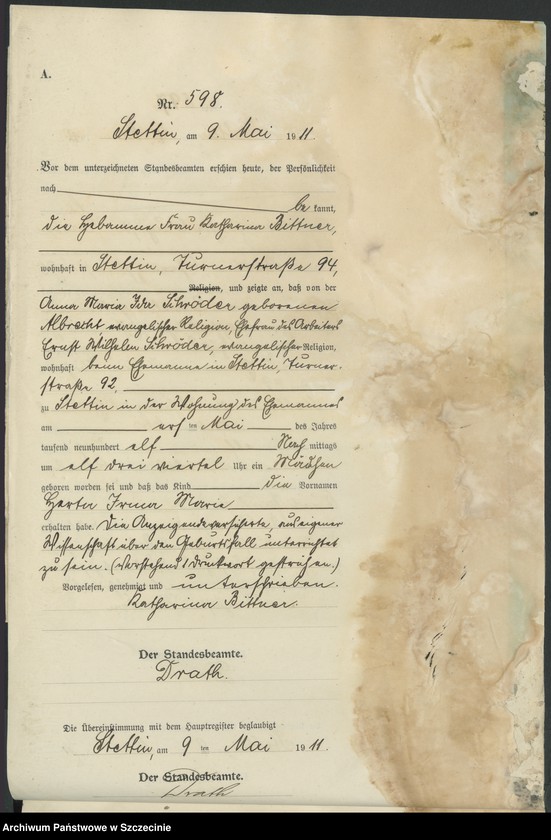 A.
Nr. 598.
Stettin, am 9. Mai 1911.
Vor dem unterzeichneten Standesbeamten erschien heute, der Persönlichkeit
nach
be kannt,
die Hebamme Frau Katharina Bittner,
wohnhaft in Stettin, Turnerstraße 94,
Religion, und zeigte an, daß von der
Anna Maria Ida Schröder geborenen
Albrecht, evangelischer Religion, Ehefrau des Arbeiters
Ernst Wilhelm Schröder, evangelischer Religion,
wohnhaft beim Ehemanne in Stettin, Turner-
straße 92,
zu Stettin in der Wohnung des Ehemannes
am ersten Mai des Jahres
tausend neunhundert elf Nach mittags
um elf drei viertel Uhr ein Mädchen
geboren worden sei und daß das Kind die Vornamen
Herta Irma Marie
erhalten habe. Die Anzeigende versicherte, aus eigener
Wissenschaft über den Geburtsfall unterrichtet
zu sein. (Vorstehend 1 Druckwort gestrichen.)
Vorgelesen, genehmigt und unterschrieben.
Katharina Bittner.
Der Standesbeamte.
Drath.
Die Übereinstimmung mit dem Hauptregister beglaubigt
Stettin, am 9ten Mai 1911.
Der Standesbeamte.
Drath
Archiwum Państwowe w Szczecinie